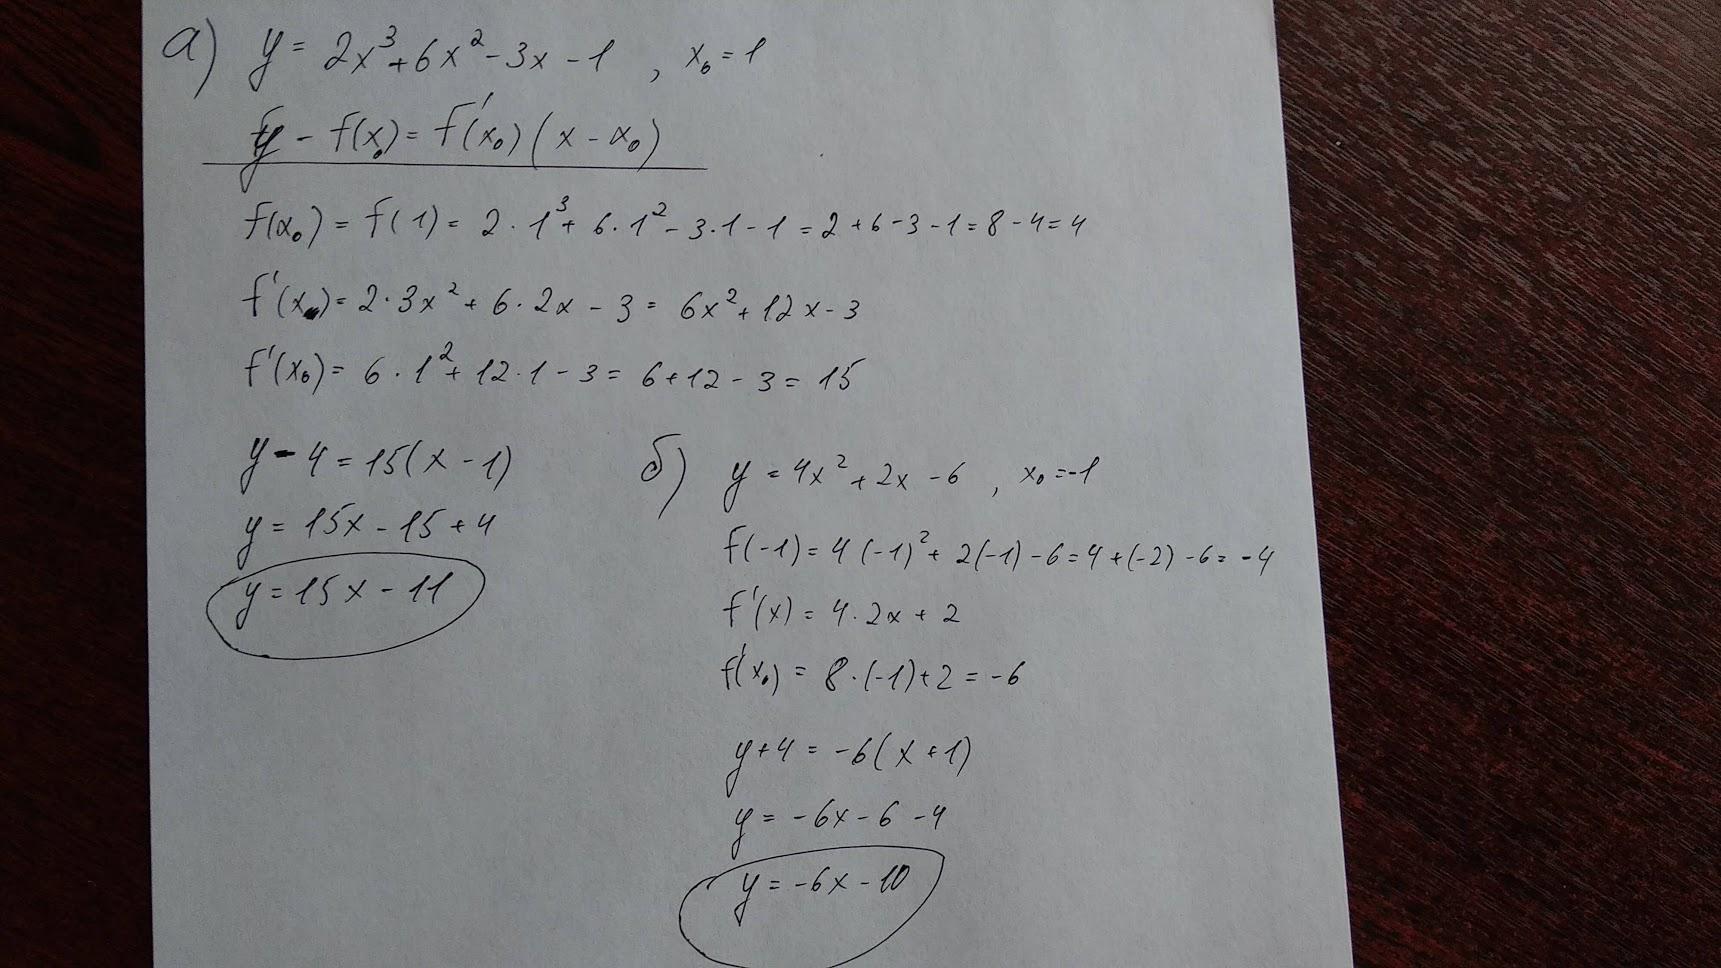 а) y = 2x³ + 6x² - 3x - 1 , x₀ = 1
y - f(x₀) = f'(x₀)(x - x₀)
f(x₀) = f(1) = 2 · 1³ + 6 · 1² - 3 · 1 - 1 = 2 + 6 - 3 - 1 = 8 - 4 = 4
f'(x) = 2 · 3x² + 6 · 2x - 3 = 6x² + 12x - 3
f'(x₀) = 6 · 1² + 12 · 1 - 3 = 6 + 12 - 3 = 15
y - 4 = 15(x - 1)
y = 15x - 15 + 4
y = 15x - 11
б) y = 4x² + 2x - 6 , x₀ = -1
f(-1) = 4(-1)² + 2(-1) - 6 = 4 + (-2) - 6 = -4
f'(x) = 4 · 2x + 2
f'(x₀) = 8 · (-1) + 2 = -6
y + 4 = -6(x + 1)
y = -6x - 6 - 4
y = -6x - 10